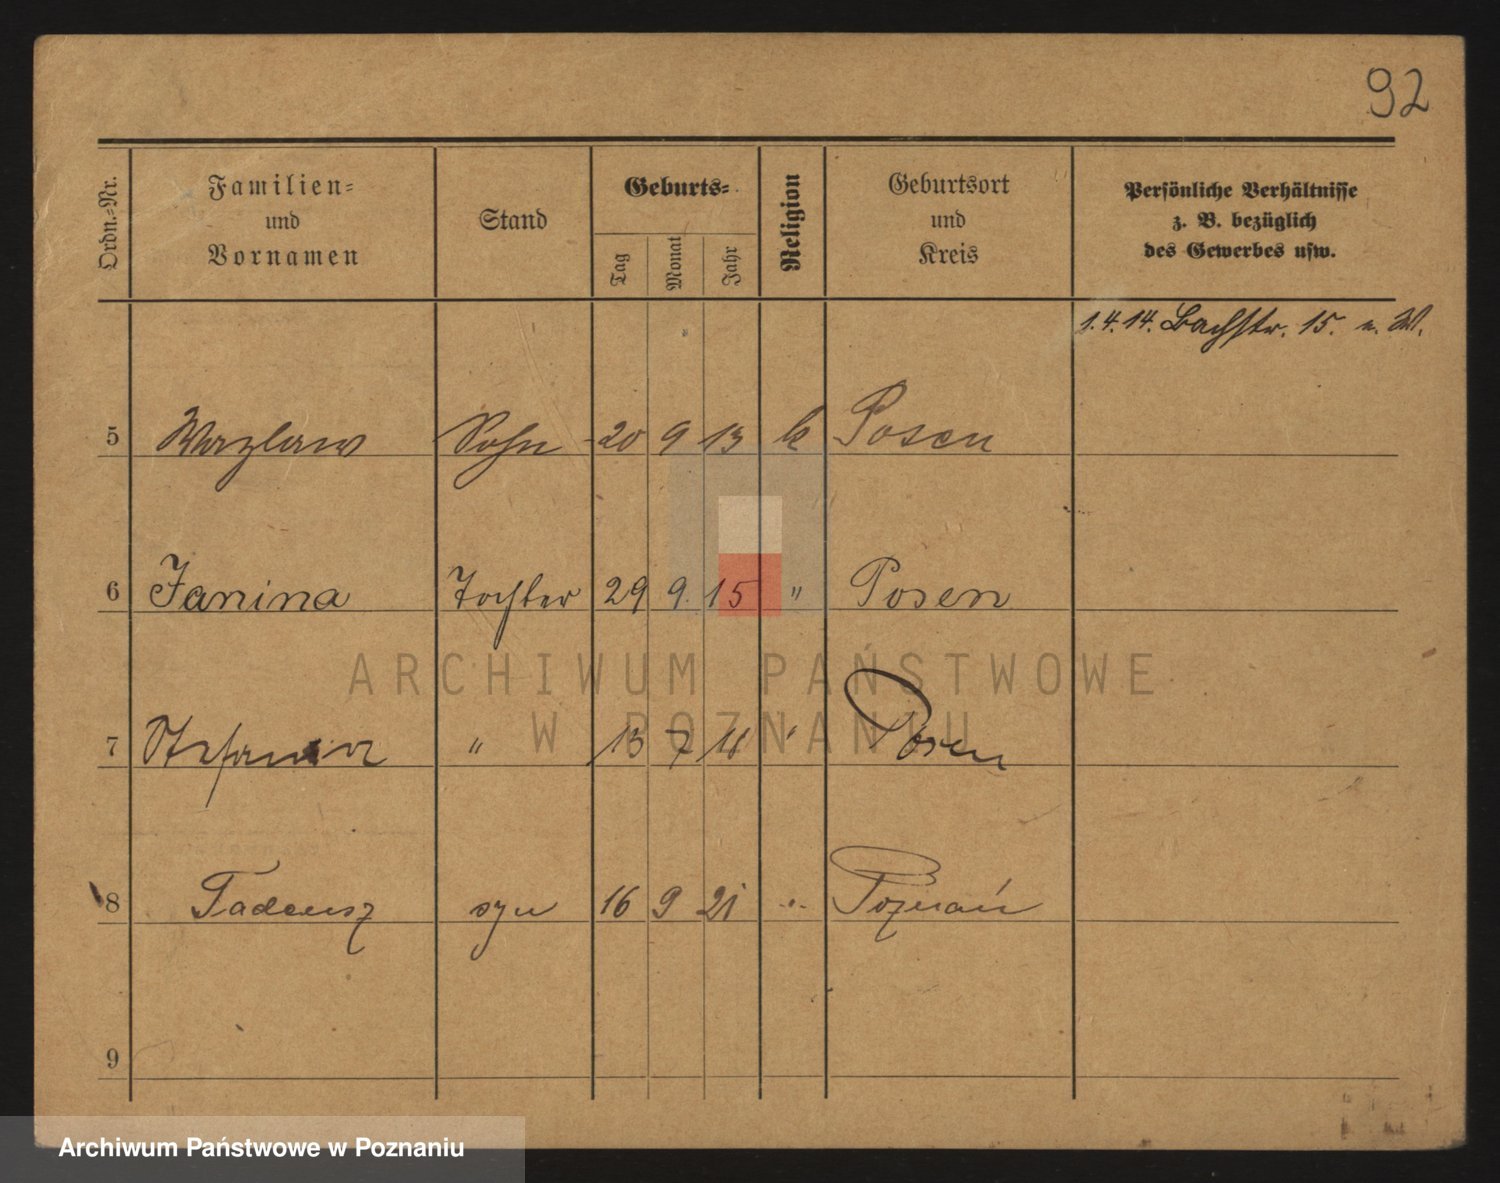 92
Ordn.-Nr.
Familien-
und
Vornamen
Stand
Geburts-
Tag
Monat
Jahr
Religion
Geburtsort
und
Kreis
Persönliche Verhältnisse
z. B. bezüglich
des Gewerbes usw.
1.4.14. Bachstr. 15. u. W.
5 Wazlaw Sohn 20 9 13 k Posen
6 Janina Tochter 29 9. 15 " Posen
ARCHIWUM PAŃSTWOWE
W POZNANIU
7 Stefania " 13 7 18 " Posen
8 Tadeusz syn 16 9 21 " Poznań
9
Archiwum Państwowe w Poznaniu